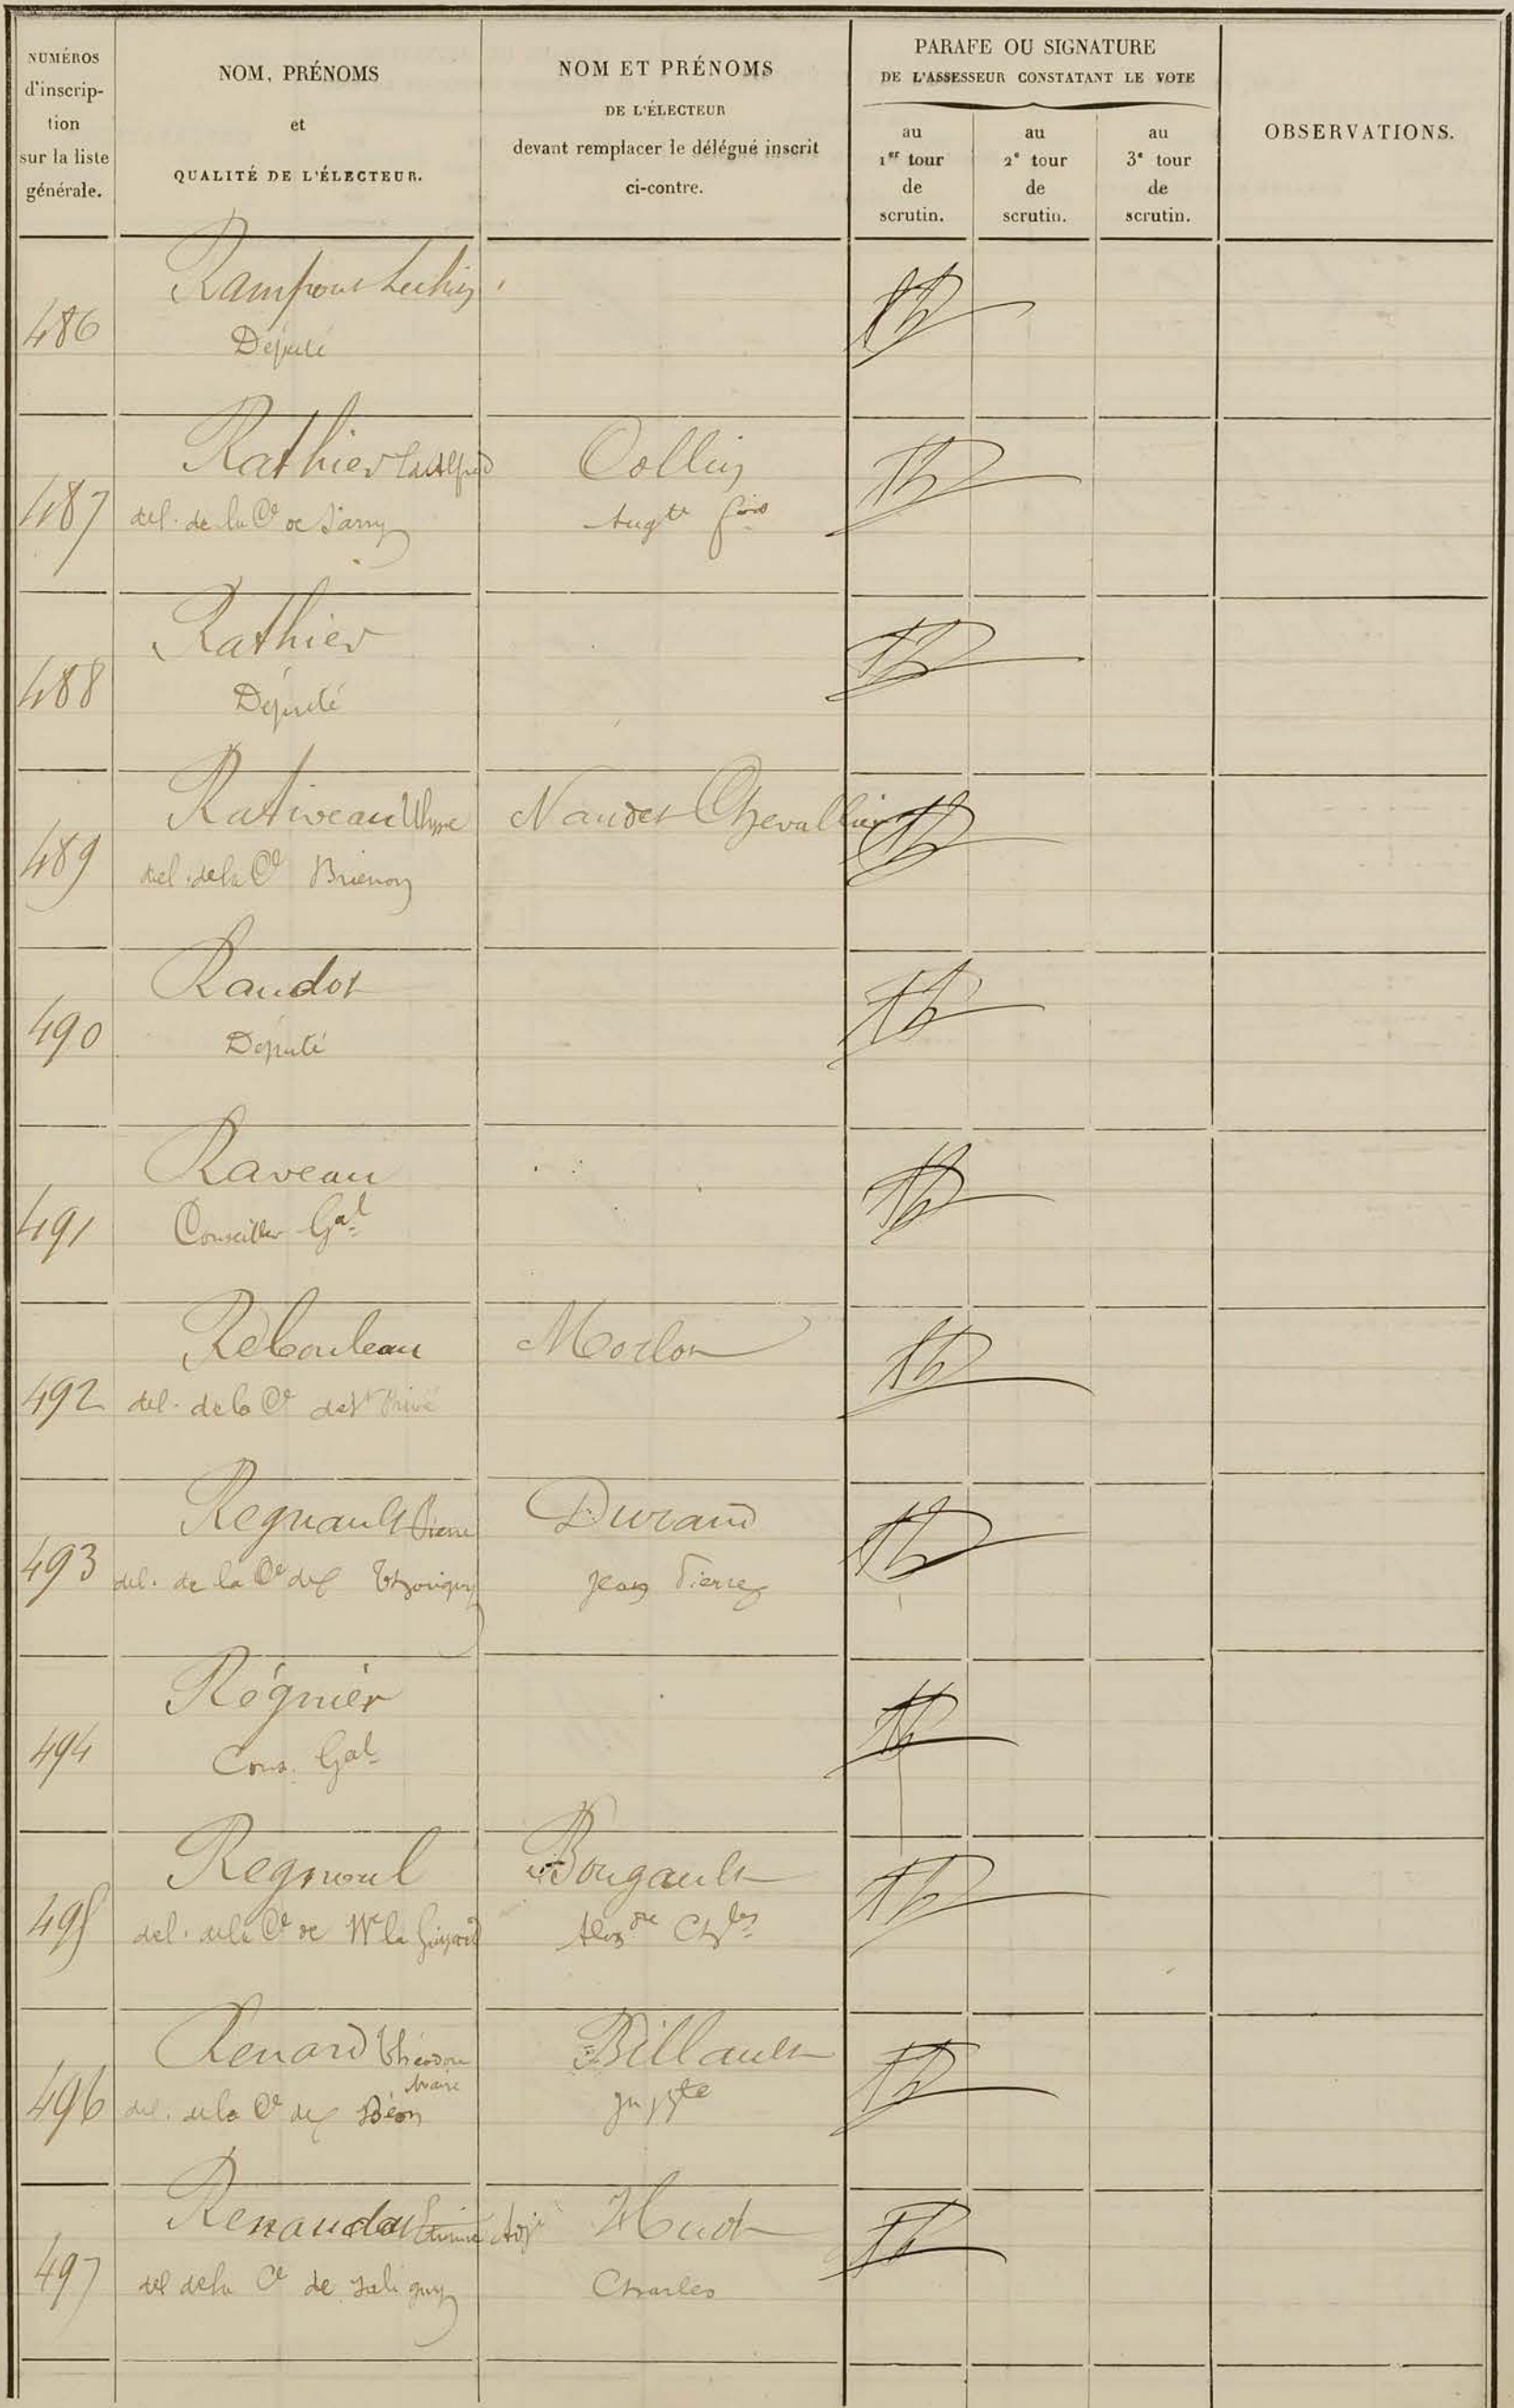 NUMÉROS
d'inscrip-
tion
sur la liste
générale.
NOM, PRÉNOMS
et
QUALITÉ DE L'ÉLECTEUR.
NOM ET PRÉNOMS
DE L'ÉLECTEUR
devant remplacer le délégué inscrit
ci-contre.
PARAFE OU SIGNATURE
DE L'ASSESSEUR CONSTATANT LE VOTE
au
1er tour
de
scrutin.
au
2e tour
de
scrutin.
au
3e tour
de
scrutin.
OBSERVATIONS.
486
Rampont Lechin
Député
487
Rathier
del. de la Ce de Sarry
Collin
Augte fois
488
Rathier
Député
489
Rativeau Ulysse
del. de la Ce Brienon
Naudet Chevallier
490
Raudot
Député
491
Raveau
Conseiller Gal
492
Rebouleau
del. de la Ce de St Privé
Morlon
493
Regnault Pierre
del. de la Ce de Thorigny
Durand
Jean Pierre
494
Régnier
Cons. Gal
495
Regnoul
del. de la Ce de la
Bougault
Alexdre Chles
496
Renard Théodore
Maire
del. de la Ce de Béon
Billault
Jn Bte
497
Renaudot Etienne Adjt
del de la Ce de Saligny
Huot
Charles